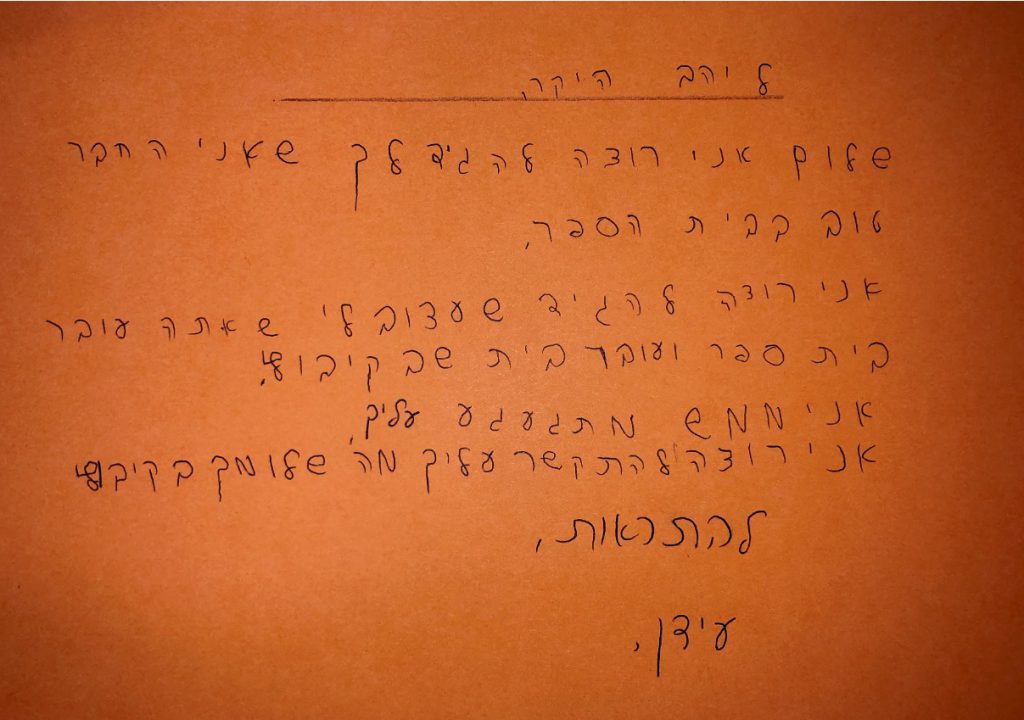 ליהב היקר,
שלום אני רוצה להגיד לך שאני החבר
טוב בבית הספר.
אני רוצה להגיד שעצוב לי שאתה עובר
בית ספר ועובר בית שב קיבוץ.
אני ממש מתגעגע עליך,
אני רוצה להתקשר עליך מה שלומך בקיבוץ
להתראות,
עידן.